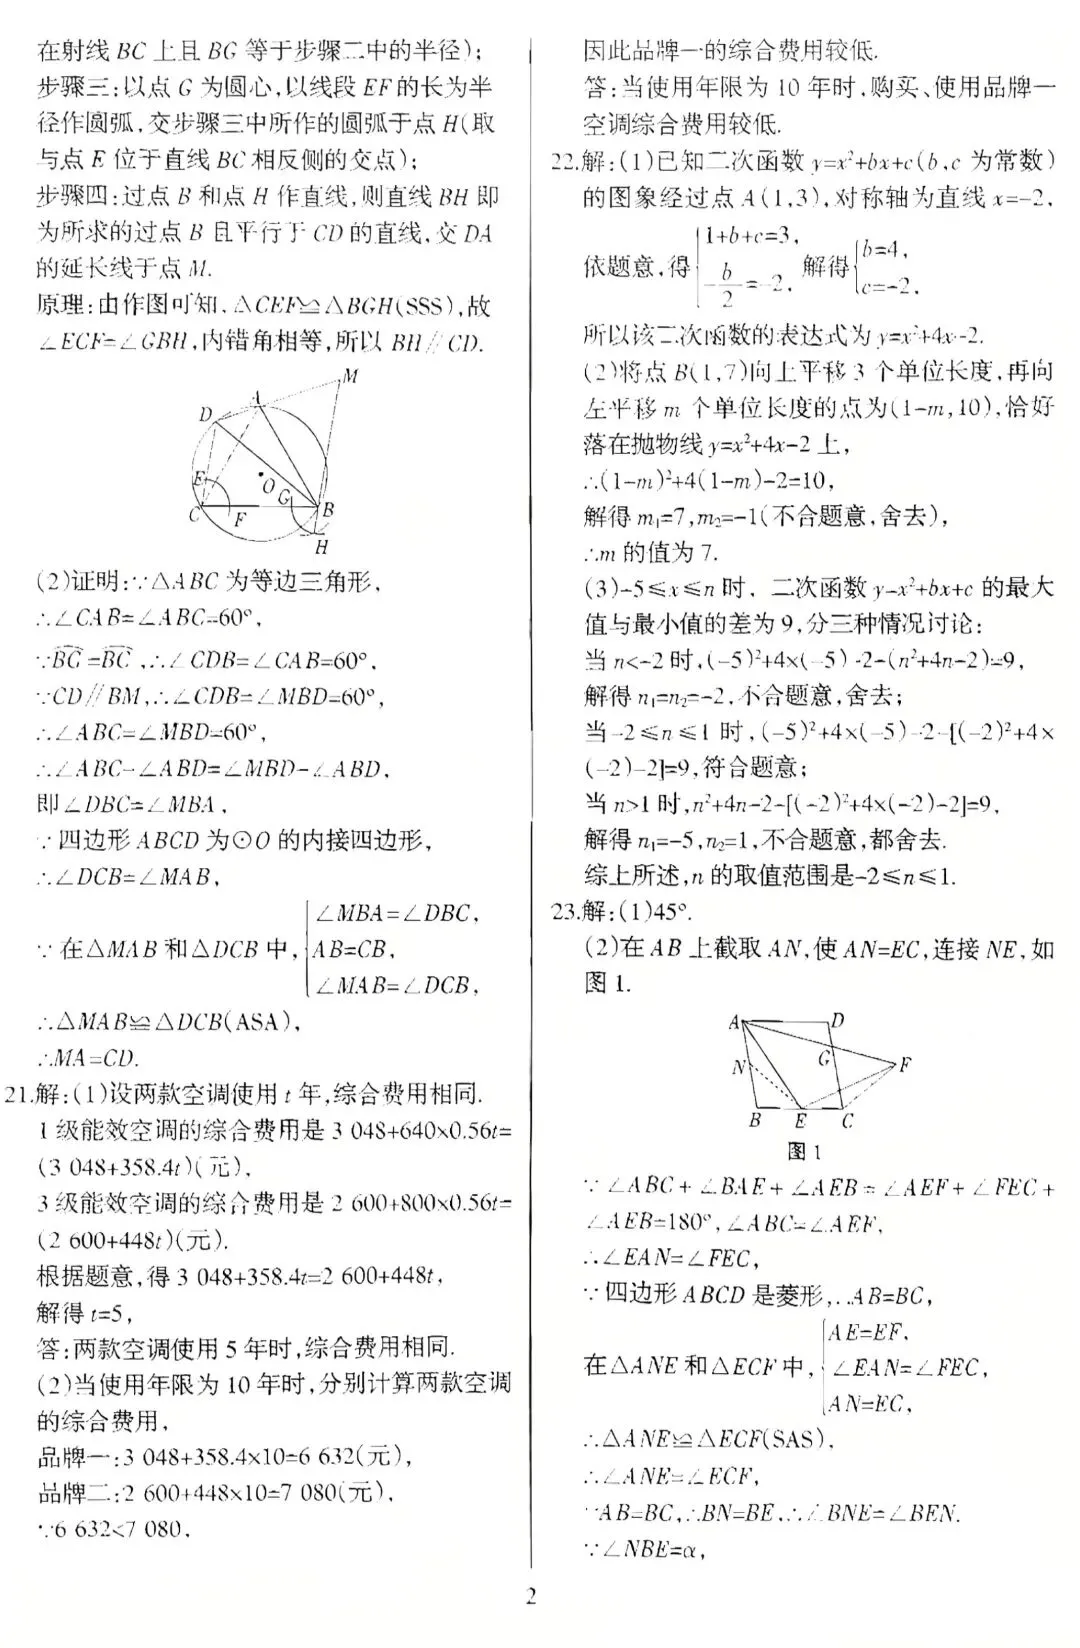 在射线 BC 上且 BG 等于步骤二中的半径);
步骤三:以点 G 为圆心,以线段 EF 的长为半
径作圆弧,交步骤三中所作的圆弧于点 H(取
与点 E 位于直线 BC 相反侧的交点);
步骤四:过点 B 和点 H 作直线,则直线 BH 即
为所求的过点 B 且平行于 CD 的直线,交 DA
的延长线于点 M.
原理:由作图可知,△CEF≌△BGH(SSS),故
∠ECF=∠GBH,内错角相等,所以 BH∥CD.
M
A
D
E
O
G
C
F
B
H
(2)证明:∵△ABC 为等边三角形,
∴∠CAB=∠ABC=60°,
∵BC=BC,∴∠CDB=∠CAB=60°,
∵CD∥BM,∴∠CDB=∠MBD=60°,
∴∠ABC=∠MBD=60°,
∴∠ABC-∠ABD=∠MBD-∠ABD,
即∠DBC=∠MBA,
∵四边形 ABCD 为⊙O 的内接四边形,
∴∠DCB=∠MAB,
∵在△MAB 和△DCB 中,
∠MBA=∠DBC,
AB=CB,
∠MAB=∠DCB,
∴△MAB≌△DCB(ASA),
∴MA=CD.
21.解:(1)设两款空调使用 t 年,综合费用相同.
1 级能效空调的综合费用是 3 048+640×0.56t=
(3 048+358.4t)(元),
3 级能效空调的综合费用是 2 600+800×0.56t=
(2 600+448t)(元).
根据题意,得 3 048+358.4t=2 600+448t,
解得 t=5,
答:两款空调使用 5 年时,综合费用相同.
(2)当使用年限为 10 年时,分别计算两款空调
的综合费用,
品牌一:3 048+358.4×10=6 632(元),
品牌二:2 600+448×10=7 080(元),
∵6 632<7 080,
因此品牌一的综合费用较低.
答:当使用年限为 10 年时,购买、使用品牌一
空调综合费用较低.
22.解:(1)已知二次函数 y=x²+bx+c(b,c 为常数)
的图象经过点 A(1,3),对称轴为直线 x=-2,
依题意,得{1+b+c=3, -b/2=-2, 解得{b=4, c=-2,
所以该二次函数的表达式为 y=x²+4x-2.
(2)将点 B(1,7)向上平移 3 个单位长度,再向
左平移 m 个单位长度的点为(1-m,10),恰好
落在抛物线 y=x²+4x-2 上,
∴(1-m)²+4(1-m)-2=10,
解得 m₁=7,m₂=-1(不合题意,舍去),
∴m 的值为 7.
(3)-5≤x≤n 时, 二次函数 y=x²+bx+c 的最大
值与最小值的差为 9,分三种情况讨论:
当 n<-2 时,(-5)²+4×(-5)-2-(n²+4n-2)=9,
解得 n₁=n₂=-2,不合题意,舍去;
当-2≤n≤1 时,(-5)²+4×(-5)-2-[(-2)²+4×
(-2)-2]=9,符合题意;
当 n>1 时,n²+4n-2-[(-2)²+4×(-2)-2]=9,
解得 n₁=-5,n₂=1,不合题意,都舍去.
综上所述,n 的取值范围是-2≤n≤1.
23.解:(1)45°.
(2)在 AB 上截取 AN,使 AN=EC,连接 NE,如
图 1.
A
D
N
G
F
B
E
C
图 1
∵∠ABC+∠BAE+∠AEB=∠AEF+∠FEC+
∠AEB=180°,∠ABC=∠AEF,
∴∠EAN=∠FEC,
∵四边形 ABCD 是菱形,∴AB=BC,
在△ANE 和△ECF 中,
AE=EF,
∠EAN=∠FEC,
AN=EC,
∴△ANE≌△ECF(SAS),
∴∠ANE=∠ECF,
∵AB=BC,∴BN=BE,∴∠BNE=∠BEN.
∵∠NBE=α,
2